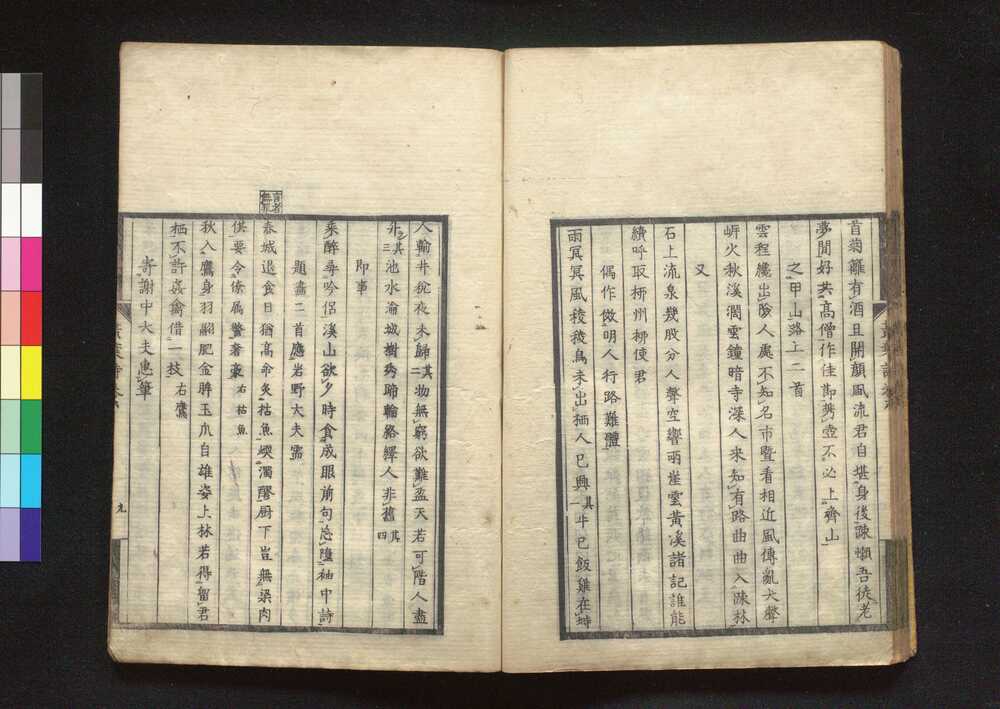 首菊籬有酒且開顔風流君自堪身後疎嬾吾徒老
夢間好共高僧作佳節携壺不必上齊山
之甲山路上二首
雲程纔出險人處不知名市暨看相近風傳亂犬聲
岈火秋溪濶雲鐘暗寺深人来知有路曲曲入疎林
又
石上流泉幾股分人聲空響雨崖雲黄溪諸記誰能
續呼取柳州柳使君
偶作倣明人行路難體
雨冥冥風稜稜鳥未出栖人已興其一牛已飯雞在塒
人輸井税夜未歸其二物無窮欲難盈天若可階人盡
升其三池水淪城樹秀蹄輪絡繹人非舊其四
即事
乗醉尋吟侶溪山欲夕時食成眼前句忘墮袖中詩
題畫二首應岩野大夫需
春城退食日猶高命灸枯魚煖濁醪厨下豈無梁肉
供要令傺属警奢豪右枯魚
秋入鷹身羽翮肥金眸玉爪自雄姿上林若得留君
栖不許姦禽借一枝右鷹
寄謝中大夫惠筆
九
言者無罪